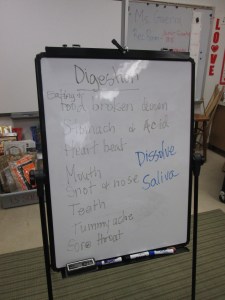 Digestion
Food broken down
Stomach & Acid
Heart beat
Mouth
Snot & nose
Teeth
Tummy ache
Sore throat
Dissolve
Saliva
LOVE